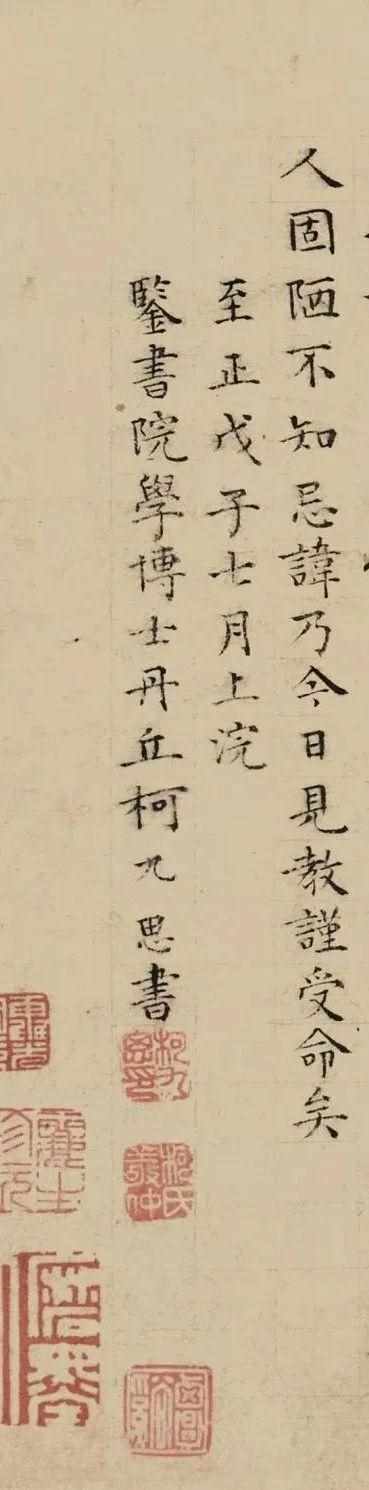 人固陋不知忌諱乃今日見教謹受命矣
至正戊子七月上浣
鑒書院學博士丹丘柯九思書
柯氏敬仲